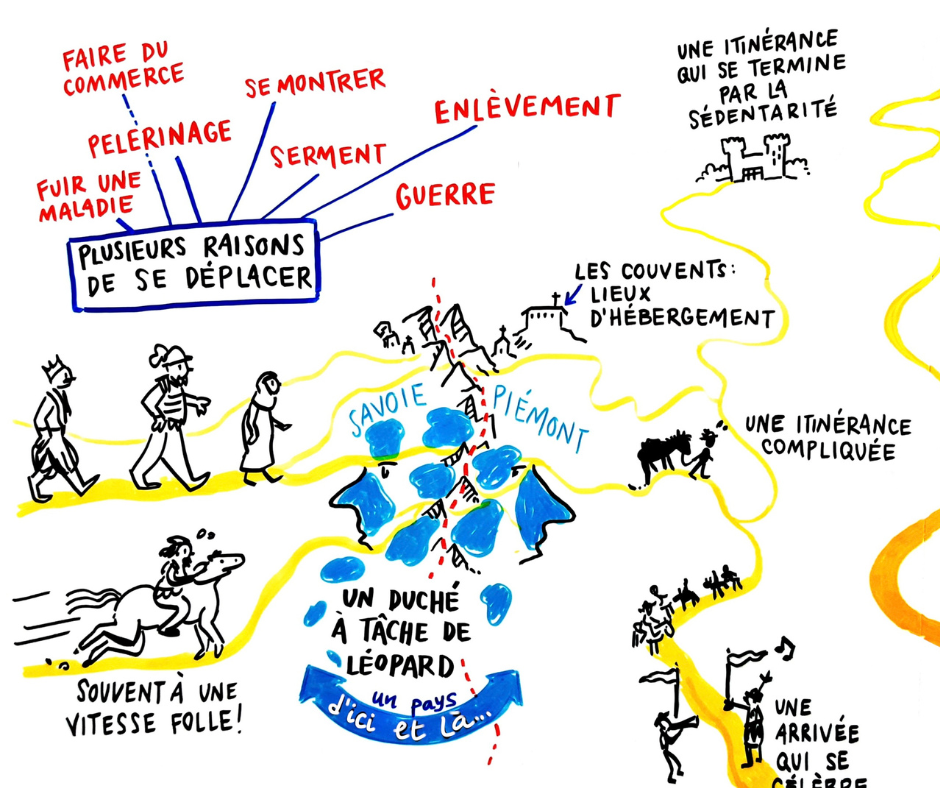 FAIRE DU
COMMERCE
SE MONTRER
ENLÈVEMENT
PELERINAGE
SERMENT
FUIR UNE
MALADIE
GUERRE
PLUSIEURS RAISONS
DE SE DÉPLACER
UNE ITINÉRANCE
QUI SE TERMINE
PAR LA
SÉDENTARITÉ
LES COUVENTS:
LIEUX
D'HÉBERGEMENT
SAVOIE
PIÉMONT
UNE ITINÉRANCE
COMPLIQUÉE
UN DUCHÉ
À TÂCHE DE
LÉOPARD
un pays
d'ici et là...
SOUVENT À UNE
VITESSE FOLLE!
UNE
ARRIVÉE
QUI SE
CÉLÈBRE